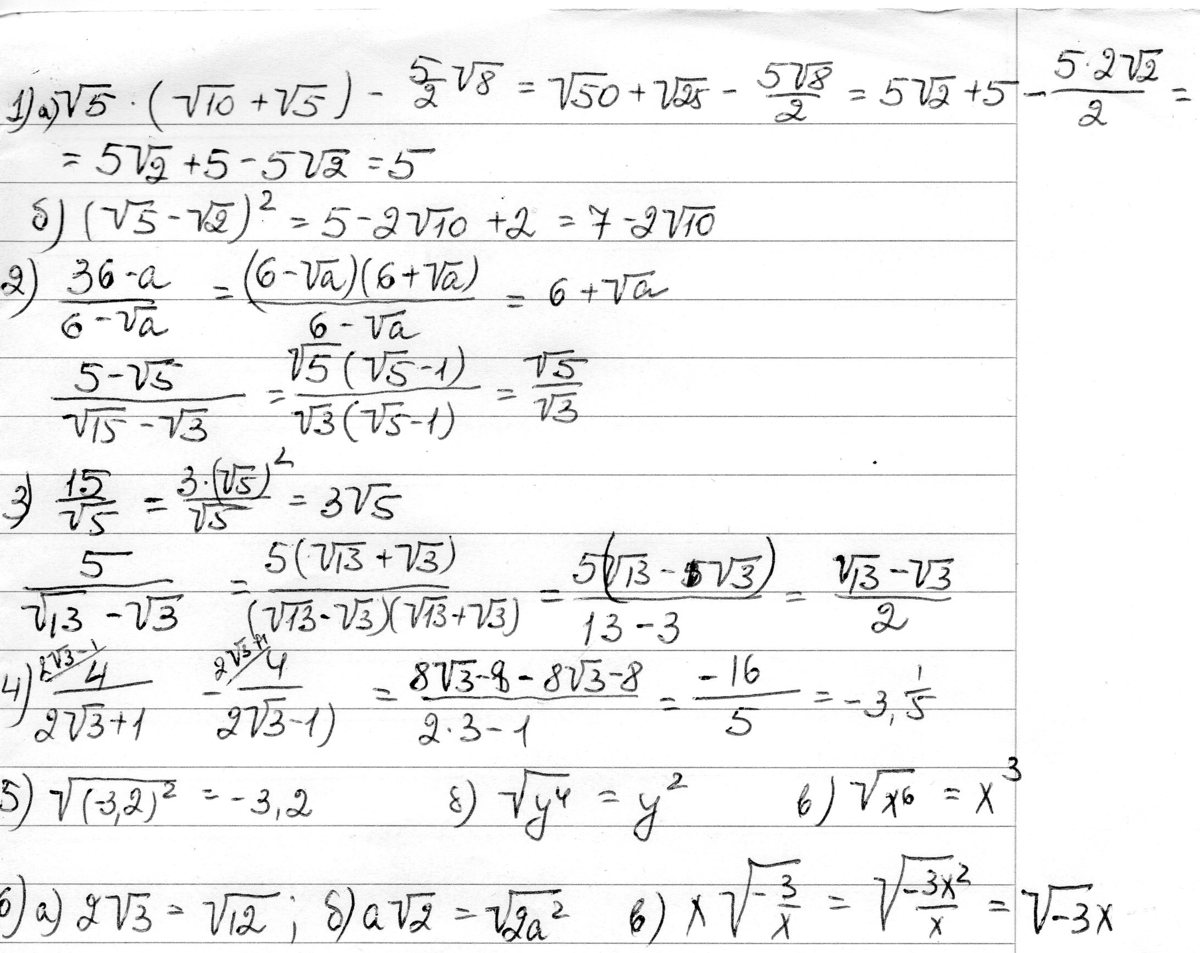 1) а) √5 · (√10 + √5) - 5/2 √8 = √50 + √25 - 5√8/2 = 5√2 + 5 - 5·2√2/2 =
= 5√2 + 5 - 5√2 = 5
б) (√5 - √2)² = 5 - 2√10 + 2 = 7 - 2√10
2) (36 - a)/(6 - √a) = (6 - √a)(6 + √a)/(6 - √a) = 6 + √a
(5 - √5)/(√15 - √3) = √5(√5 - 1)/(√3(√5 - 1)) = √5/√3
3) 15/√5 = 3·(√5)²/√5 = 3√5
5/(√13 - √3) = 5(√13 + √3)/((√13 - √3)(√13 + √3)) = 5(√13 - √3)/(13 - 3) = (√13 - √3)/2
4) 2√3-1/ 4/(2√3 + 1) - 2√3+1/ 4/(2√3 - 1) = (8√3 - 8 - 8√3 - 8)/(2·3 - 1) = -16/5 = -3, 1/5
5) √(-3,2)² = -3,2 б) √y⁴ = y² в) √x⁶ = x³
6) а) 2√3 = √12 ; б) a√2 = √2a² в) x√(-3/x) = √(-3x²/x) = √-3x